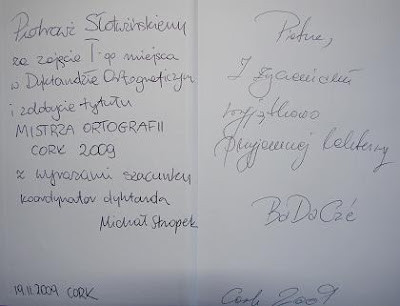 Piotrowi Słotwińskiemu
za zajęcie I-go miejsca
w Dyktandzie Ortograficznym
i zdobycie tytułu
MISTRZA ORTOGRAFII
CORK 2009
z wyrazami szacunku
koordynator dyktanda
Michał Stropek
19.11.2009 CORK
Piotrze,
z życzeniami
wyjątkowo
przyjemnej lektury
Cork 2009